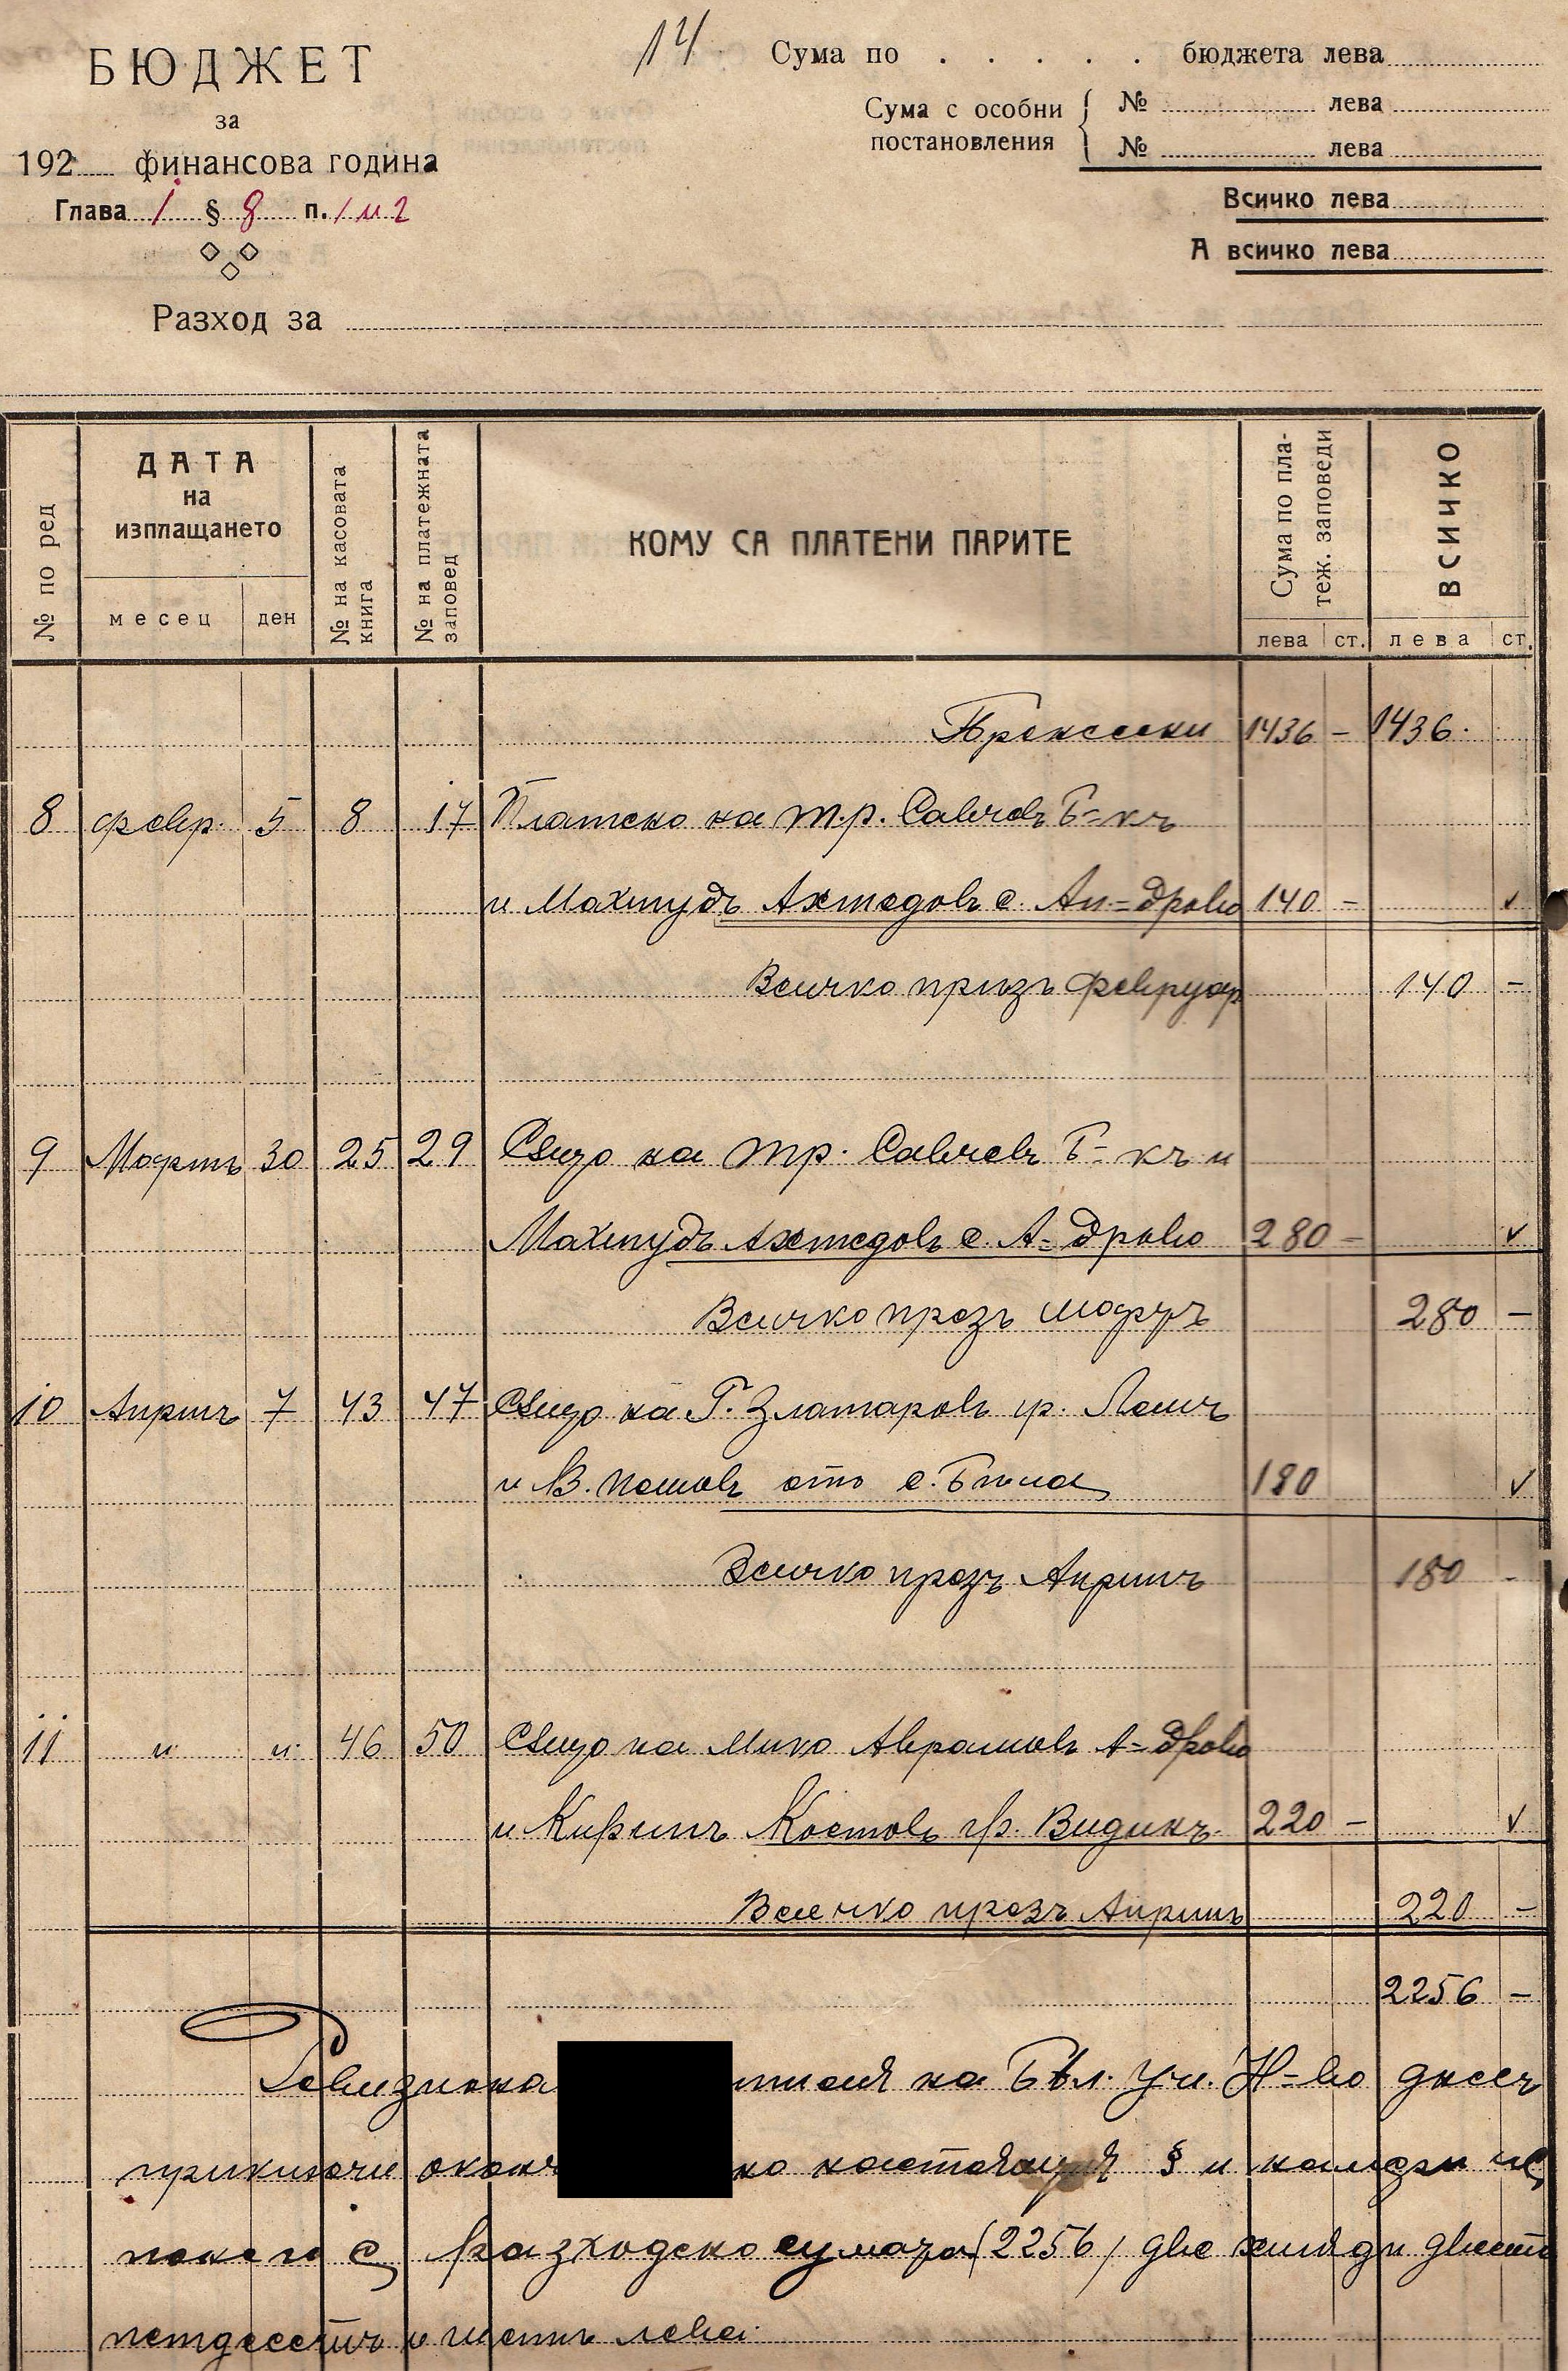 14
БЮДЖЕТ
за
192 финансова година
Глава I § 8 п. 1 и 2
Разход за
Сума по . . . . . бюджета лева
Сума с особни постановления
№ лева
№ лева
Всичко лева
А всичко лева
№ по ред
ДАТА на изплащането
месец ден
№ на касовата книга
№ на платежната заповед
КОМУ СА ПЛАТЕНИ ПАРИТЕ
Сума по платеж. заповеди
лева ст.
ВСИЧКО
лева ст.
Пренесени 1436 – 1436.
8 февр. 5 8 17 Платено на т.р. Савчевъ Б=къ
и Махмудъ Ахмедовъ с. Ап.=дрово 140 – ✓
Всичко презъ февруар 140 –
9 Мартъ 30 25 29 Също на тр. Савчевъ Б=къ и
Махмудъ Ахмедовъ с. А=дрово 280 – ✓
Всичко презъ мартъ 280 –
10 Априлъ 7 43 47 Също на Г. Златаровъ гр. Ломъ
и В. отъ с. 180 ✓
Всичко презъ Априлъ 180 -
11 " " 46 50 Също на Мико Аврамовъ А=дрово
и Кирилъ Костовъ гр. Видинъ. 220 – ✓
Всичко презъ Априлъ 220 –
2256 –
Ревизиона мисия на Бѣл. Уч. Н=во днесъ
приключи оконч но настоящия § и намери че
по него е разходено сумата (2256) две хиляди двеста
петдесетъ и шесть лева.